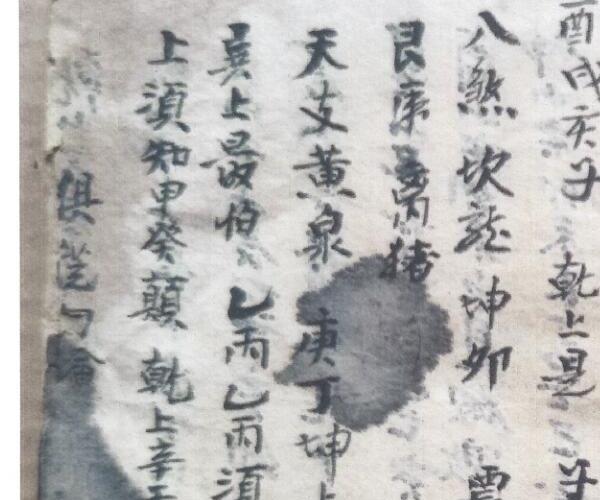 酉戌亥子 乾上是子
八煞 坎龍 坤卯
艮 离猪
天支黄泉 庚丁坤上
巽上最怕 乙丙乙丙須
上須知甲癸顛 乾上辛
俱